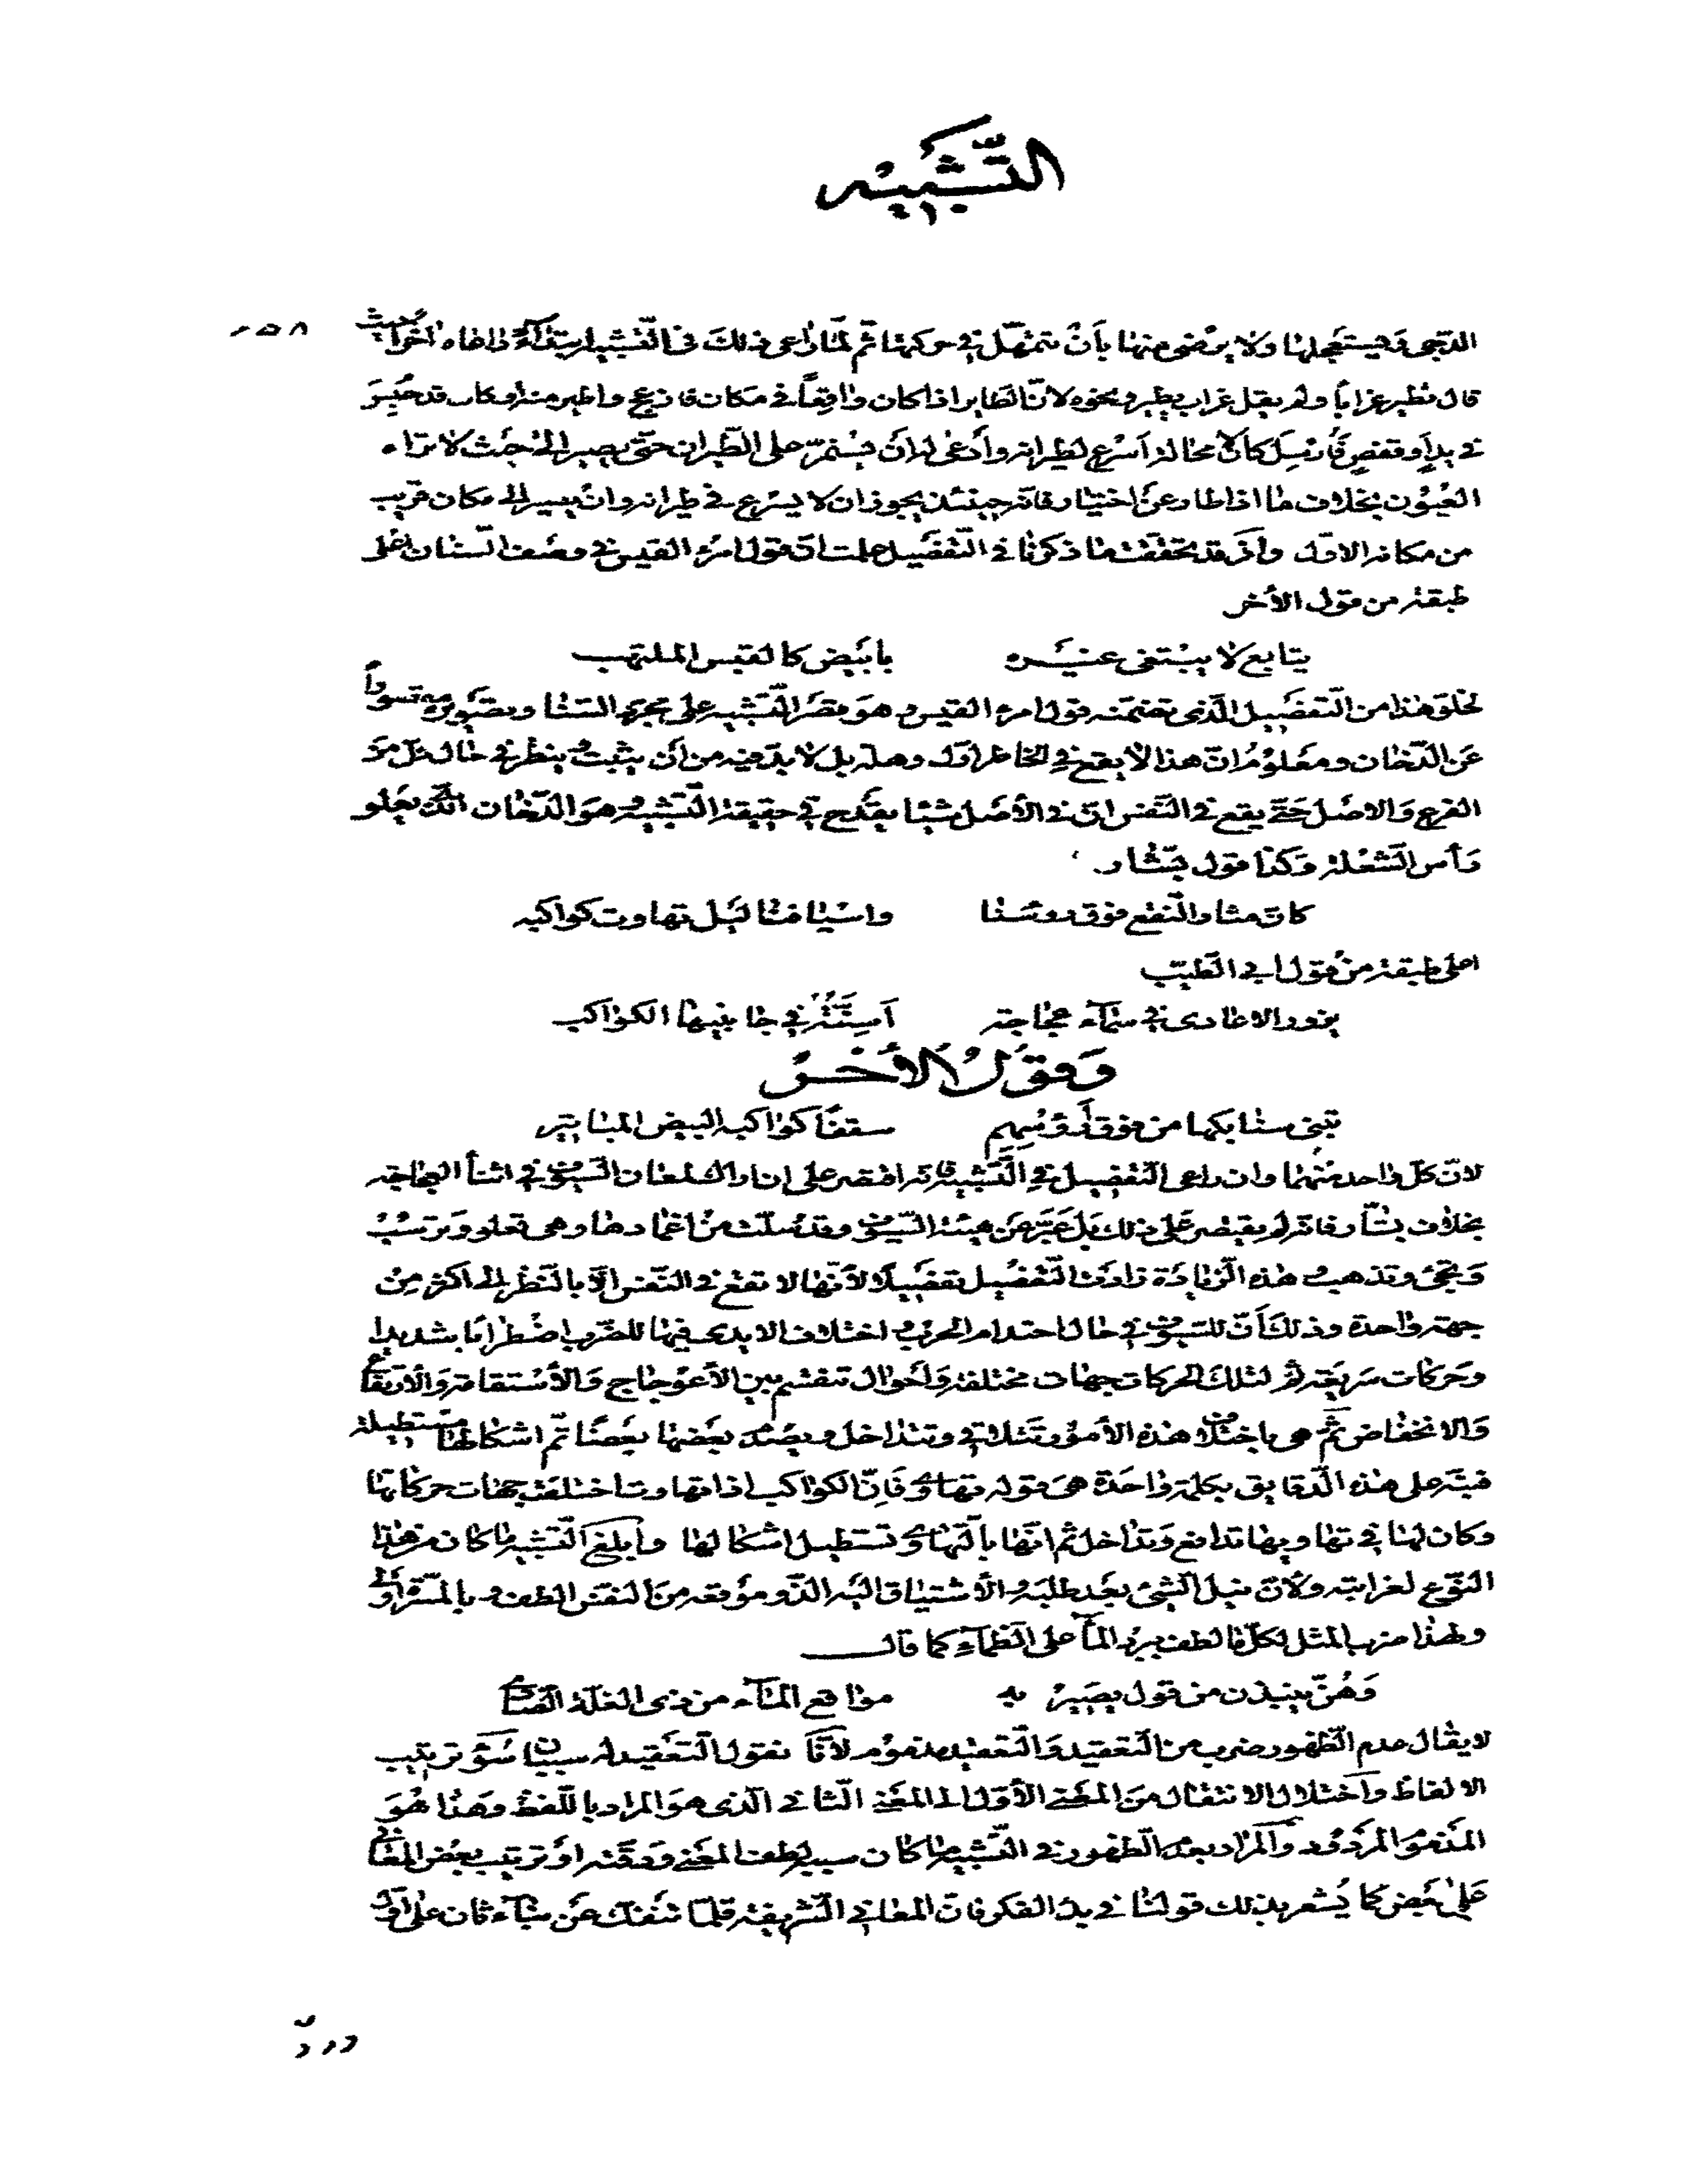 التَّشْبِيْه
٢٥٨
الدّجى ويستعجلها ولا يرضى منها بأن تتمهّل في حركتها ثم لمّا راعى ذلك في التّشبيه ابتداءً راعاه آخراً حيث
قال نطير غراباً ولم يقل غراب يطير ونحوه لانّ الطاير اذا كان واقعاً في مكان فازعج واطير منه او كان قد حُبِسَ
في يد أو قفص فأرسل كان لا محالة اسرع لطيرانه وأدعى له ان يستمرّ على الطّيران حتّى يصير الى حيث لا تراه
العُيُون بخلاف ما اذا طار عن اختيار فانّه حينئذ يجوز ان لا يسرع في طيرانه وان يصير الى مكان قريب
من مكانه الاوّل واذ قد تحقّقت ما ذكرنا في التّفصيل علمت انّ قول امرء القيس في وصف السّنان اعلى
طبقة من قول الأخر
يتابع لا يبتغى غيره بأبيض كالقبس الملتهب
لخلوّ هذا من التّفصيل الّذى تضمّنه قول امرء القيس وهو قصر التّشبيه على مجرّد السّنا وتصويره مقسوراً
عن الدّخان ومعلوم انّ هذا لا يقع في الخاطر اوّل وهلة بل لا بدّ فيه من أن يثبت وينظر في حال كلّ من
الفرع والاصل حتّى يقع في النّفس انّ في الأصل شيئا يقدح في حقيقة التّشبيه وهو الدّخان الّذى يعلو
رأس الشّعلة وكذا قول بشّار
كانّ مثار النّقع فوق رؤسنا واسيافنا ليل تهاوت كواكبه
اعلى طبقة من قول ابي الطّيّب
يزور الاعادى في سمآء عجاجة اسنّته في جانبيها الكواكب
وَقَوْلُ الأخَرِ
تبنى سنابكها من فوق أرؤسهم سقفاً كواكبه البيض المباتير
لانّ كلّ واحد منهما وان راعى التّفصيل في التّشبيه فانّه اقتصر على ان اراك لمعان السّيوف في اثنآ العجاجة
بخلاف بشّار فانّه لم يقتصر على ذلك بل عبّر عن هيئة السّيوف وقد سلّت من اغمادها وهى تعلو وترسب
وتجئ وتذهب وهذه الزّيادة زادت التّفصيل تفصيلاً لأنّها لا تقع في النّفس الّا بالنّظر الى اكثر من
جهة واحدة وذلك أنّ للسّيوف في حال احتدام الحرب واختلاف الايدى فيها للضّرب اضطراباً شديدا
وحركات سريعة ثمّ لتلك الحركات جهات مختلفة وأحوال تنقسم بين الأعوجاج والأستقامة والأرتفاع
والانخفاض ثمّ هى باختلاف هذه الأمور تتلاقى وتتداخل ويصدم بعضها بعضاً ثمّ اشكالها مستطيلة
فنبّه على هذه الدّقايق بكلمة واحدة هى قوله تهاوى فانّ الكواكب اذا تهاوت اختلفت جهات حركاتها
وكان لها في تهاويها تدافع وتداخل ثمّ انّها بالتّهاوى تستطيل اشكالها وأبلغ التّشبيه ما كان من هذا
النّوع لغرابته ولأنّ نيل الشّئ بعد طلبه والأشتياق اليه الذّ وموقعه من النّفس الطف وبالمسرّة اولى
ولهذا ضرب المثل لكلّ ما لطف ببرد المآ على الظّمآء كما قال
وهنّ ينبذن من قول يصبن به مواقع المآء من ذى الغلّة الصّادى
لا يقال عدم الظّهور ضرب من التّعقيد والتّعقيد مذموم لأنّا نقول التّعقيد له سببان سوء ترتيب
الالفاظ واختلال الانتقال من المعنى الأوّل الى المعنى الثّانى الّذى هو المراد باللّفظ وهذا هو
المذموم المردود والمراد بعدم الظّهور في التّشبيه ما كان سببه لطف المعنى ودقّته او ترتيب بعض المعانى
على بعض كما يُشعر بذلك قولنا في بدء الفكر فانّ المعانى الشّريفة قلّما تنفكّ عن بنآء ثان على اوّل
وردّ